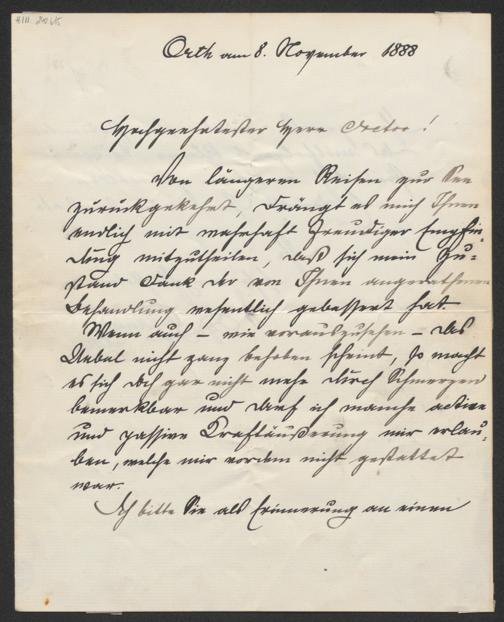 Orth am 8. November 1888
Hochgeehrtester Herr Doctor!
Von längeren Reisen zur See
zurückgekehrt, drängt es mich Ihnen
endlich mit wahrhaft freudiger Empfin-
dung mitzutheilen, daß sich mein Zu-
stand Dank der von Ihnen angerathenen
Behandlung wesentlich gebessert hat.
Wenn auch – wie vorauszusehen – das
Uebel nicht ganz behoben scheint, so macht
es sich doch gar nicht mehr durch Schmerzen
bemerkbar und darf ich manche active
und passive Kraftäußerung mir erlau-
ben, welche mir vordem nicht gestattet
war.
Ich bitte Sie als Erinnerung an einen